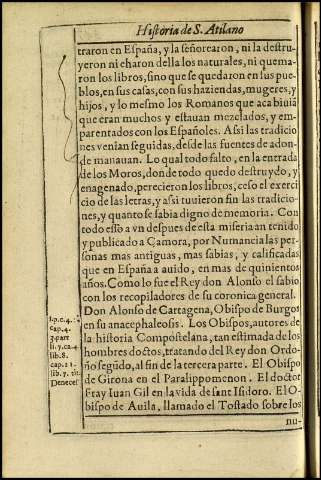 Historia de S. Atilano
traron en España, y la señorearon, ni la destru-
yeron ni charon della los naturales, ni quema-
ron los libros, sino que se quedaron en sus pue-
blos, en sus casas, con sus haziendas, mugeres, y
hijos, y lo mesmo los Romanos que aca biuiā
que eran muchos y estauan mezclados, y em-
parentados con los Españoles. Assi las tradicio
nes venian seguidas, desde las fuentes de adon-
de manauan. Lo qual todo falto, en la entrada
de los Moros, donde todo quedo destruydo, y
enagenado, perecieron los libros, ceso el exerci
cio de las letras, y assi tuuieron fin las tradicio-
nes, y quanto se sabia digno de memoria. Con
todo esso a vn despues de esta miseria an tenido
y publicado a Çamora, por Numancia las per-
sonas mas antiguas, mas sabias, y calificadas
que en España a auido, en mas de quinientos
años. Como lo fue el Rey don Alonso el sabio
con los recopiladores de su coronica general.
Don Alonso de Cartagena, Obispo de Burgos
en su anacephaleosis. Los Obispos, autores de
la historia Compostelana, tan estimada de los
hombres doctos, tratando del Rey don Ordo-
ño segūdo, al fin de la tercera parte. El Obispo
de Girona en el Paralippomenon. El doctor
Fray Iuan Gil en la vida de sant Isidoro. El O-
bispo de Auila, llamado el Tostado sobre los
nu-
1.p.c.4.
cap.4.
3.part
li.7.ca.4
lib.8.
cap.21.
lib.7. tit.
Denecer